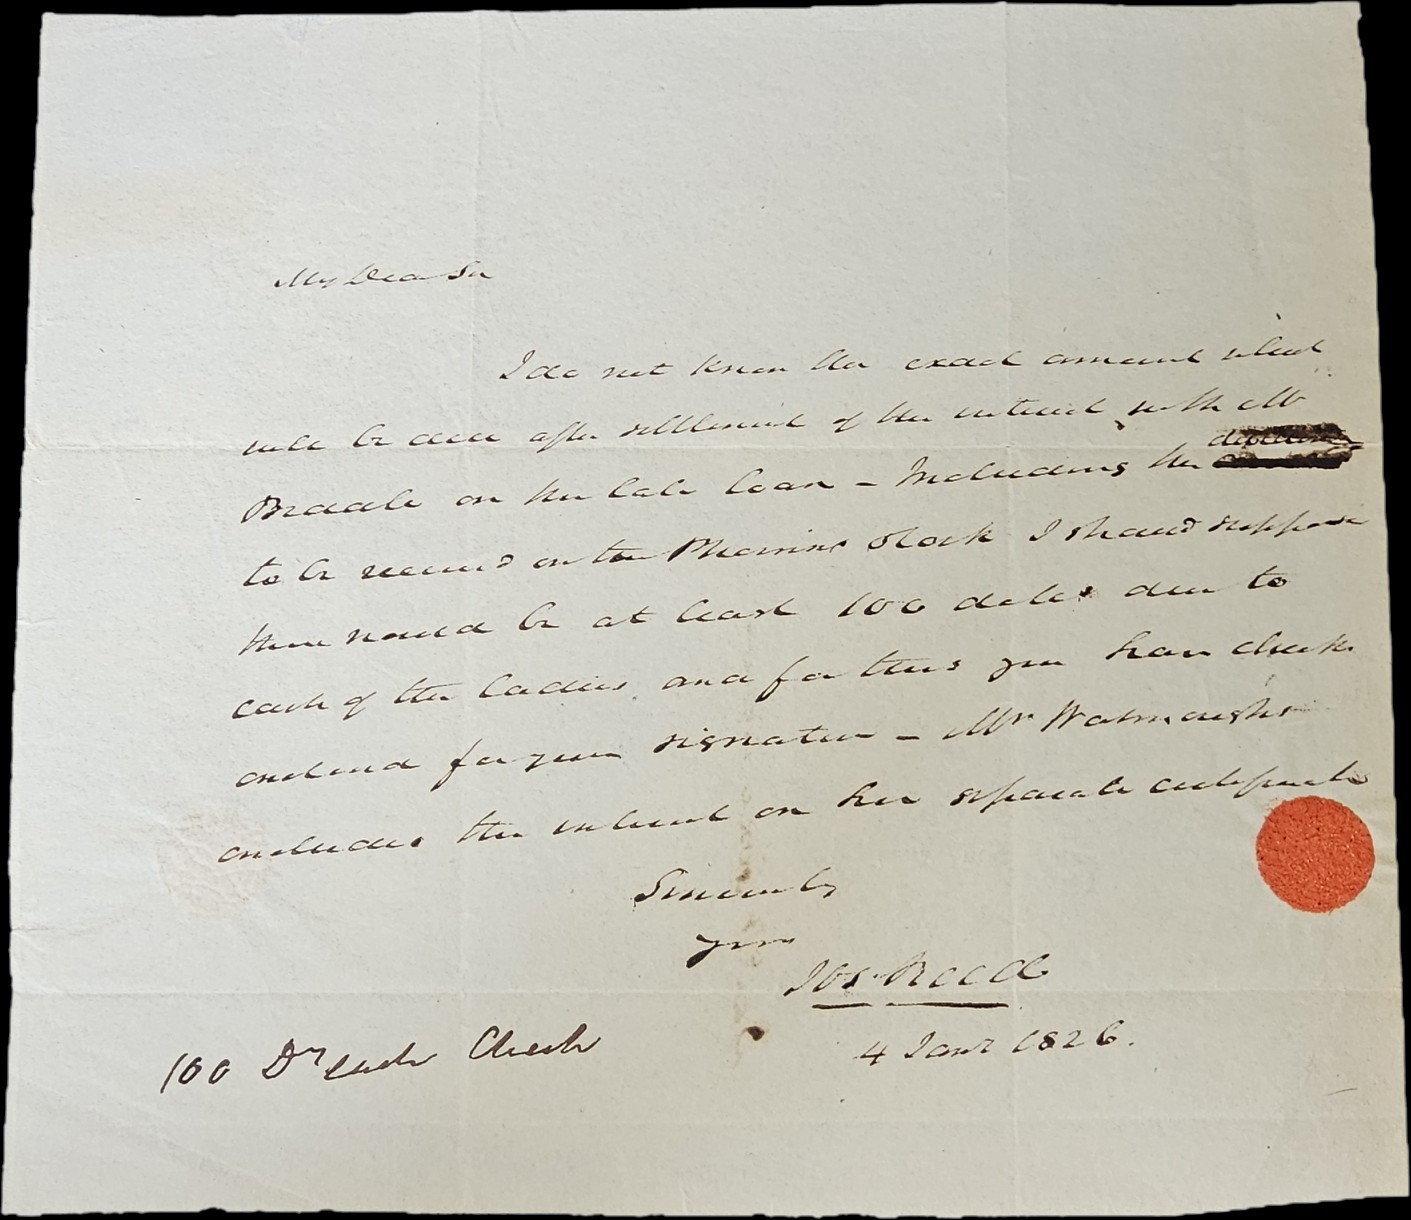 My Dear Sir
I do not know the exact amount which
will be due after settlement of the interest with Mr
Biddle on the late loan - Including the dividend
to be received on the Phoenix Stock I should suppose
there would be at least 100 dolls due to
each of the Ladies and for this you have checks
enclosed for your signature - Mrs
includes the interest on her separate
Sincerely
yours
Jos. Reed
4 Jany 1826.
100 Drs each Check